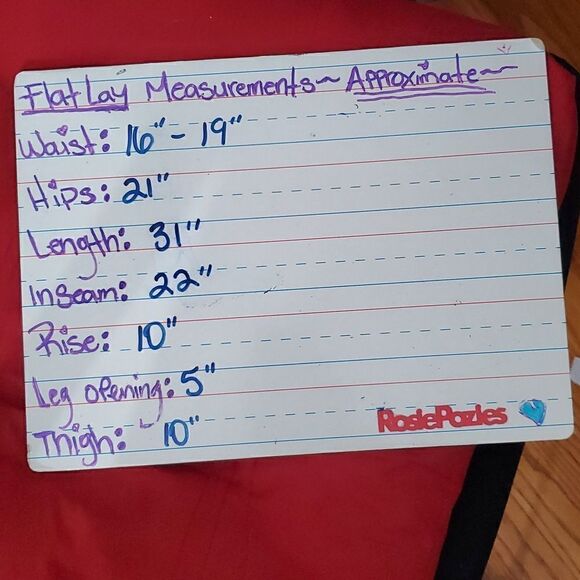 Flat Lay Measurements~ Approximate~
Waist: 16" - 19"
Hips: 21"
Length: 31"
Inseam: 22"
Rise: 10"
Leg opening: 5"
Thigh: 10"
RosiePozies